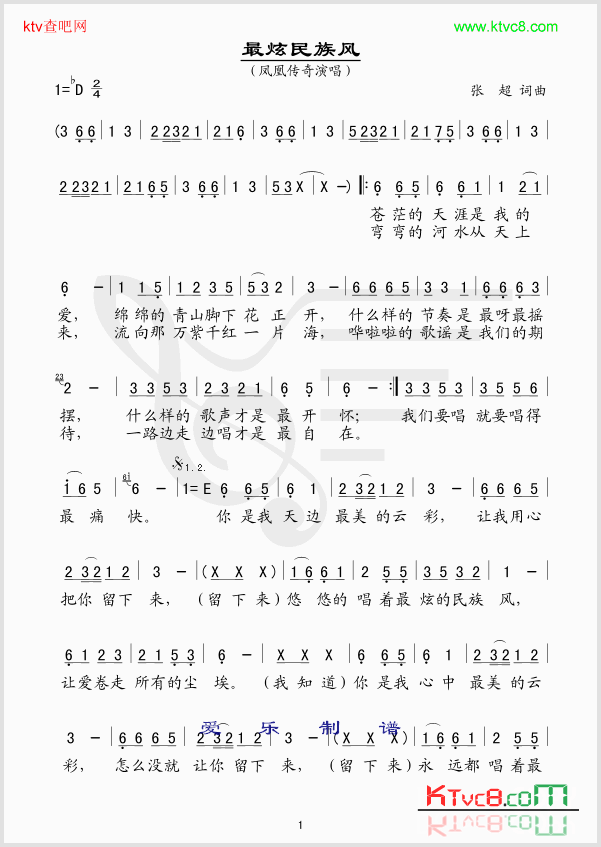 ktv查吧网
www.ktvc8.com
最炫民族风
（凤凰传奇演唱）
1=♭D 2/4
张 超 词曲
(3 6 6 | 1 3 | 2 2 3 2 1 | 2 1 6 | 3 6 6 | 1 3 | 5 2 3 2 1 | 2 1 7 5 | 3 6 6 | 1 3 |
2 2 3 2 1 | 2 1 6 5 | 3 6 6 | 1 3 | 5 3 X | X －) ‖: 6 6 5 | 6 6 1 | 1 2 1 |
苍 茫的 天 涯是 我 的
弯 弯的 河 水从 天 上
6 － | 1 1 5 | 1 2 3 5 | 5 3 2 | 3 － | 6 6 6 5 | 3 3 1 | 6 6 6 3 |
爱， 绵绵的 青山脚下 花 正 开， 什么样的 节奏是 最呀最摇
来， 流向那 万紫千红 一 片 海， 哗啦啦的 歌谣是 我们的期
23 2 － | 3 3 5 3 | 2 2 3 2 1 | 6 5 | 6 － :‖ 3 3 5 3 | 3 5 5 6 |
摆， 什么样的 歌声才是 最 开 怀； 我们要唱 就要唱得
待， 一路边走 边唱才是 最 自 在。
𝄋 1.2.
i 6 5 | 6 － | 1=E 6 6 5 | 6 1 | 2 3 2 1 2 | 3 － | 6 6 6 5 |
最 痛 快。 你 是我 天 边 最美 的云 彩， 让我用心
2 3 2 1 2 | 3 － | (X X X) | 1 6 6 1 | 2 5 5 | 3 5 3 5 | 1 － |
把你 留下 来， （留 下 来）悠 悠的 唱 着最 炫的民族 风，
6 1 2 3 | 2 1 5 3 | 6 － | X X X | 6 6 5 | 6 1 | 2 3 2 1 2 |
让爱卷走 所有的尘 埃。（我 知 道）你 是我 心 中 最美 的云
爱 乐 制 谱
3 － | 6 6 6 5 | 2 3 2 1 2 | 3 － | (X X X) | 1 6 6 1 | 2 5 5 |
彩， 怎么没就 让你 留下 来，（留 下 来）永 远都 唱 着最
KTvc8.com
1